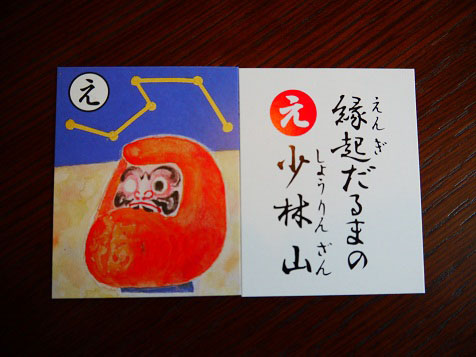 え
え
えんぎ
縁起だるまの
しょうりんざん
少林山